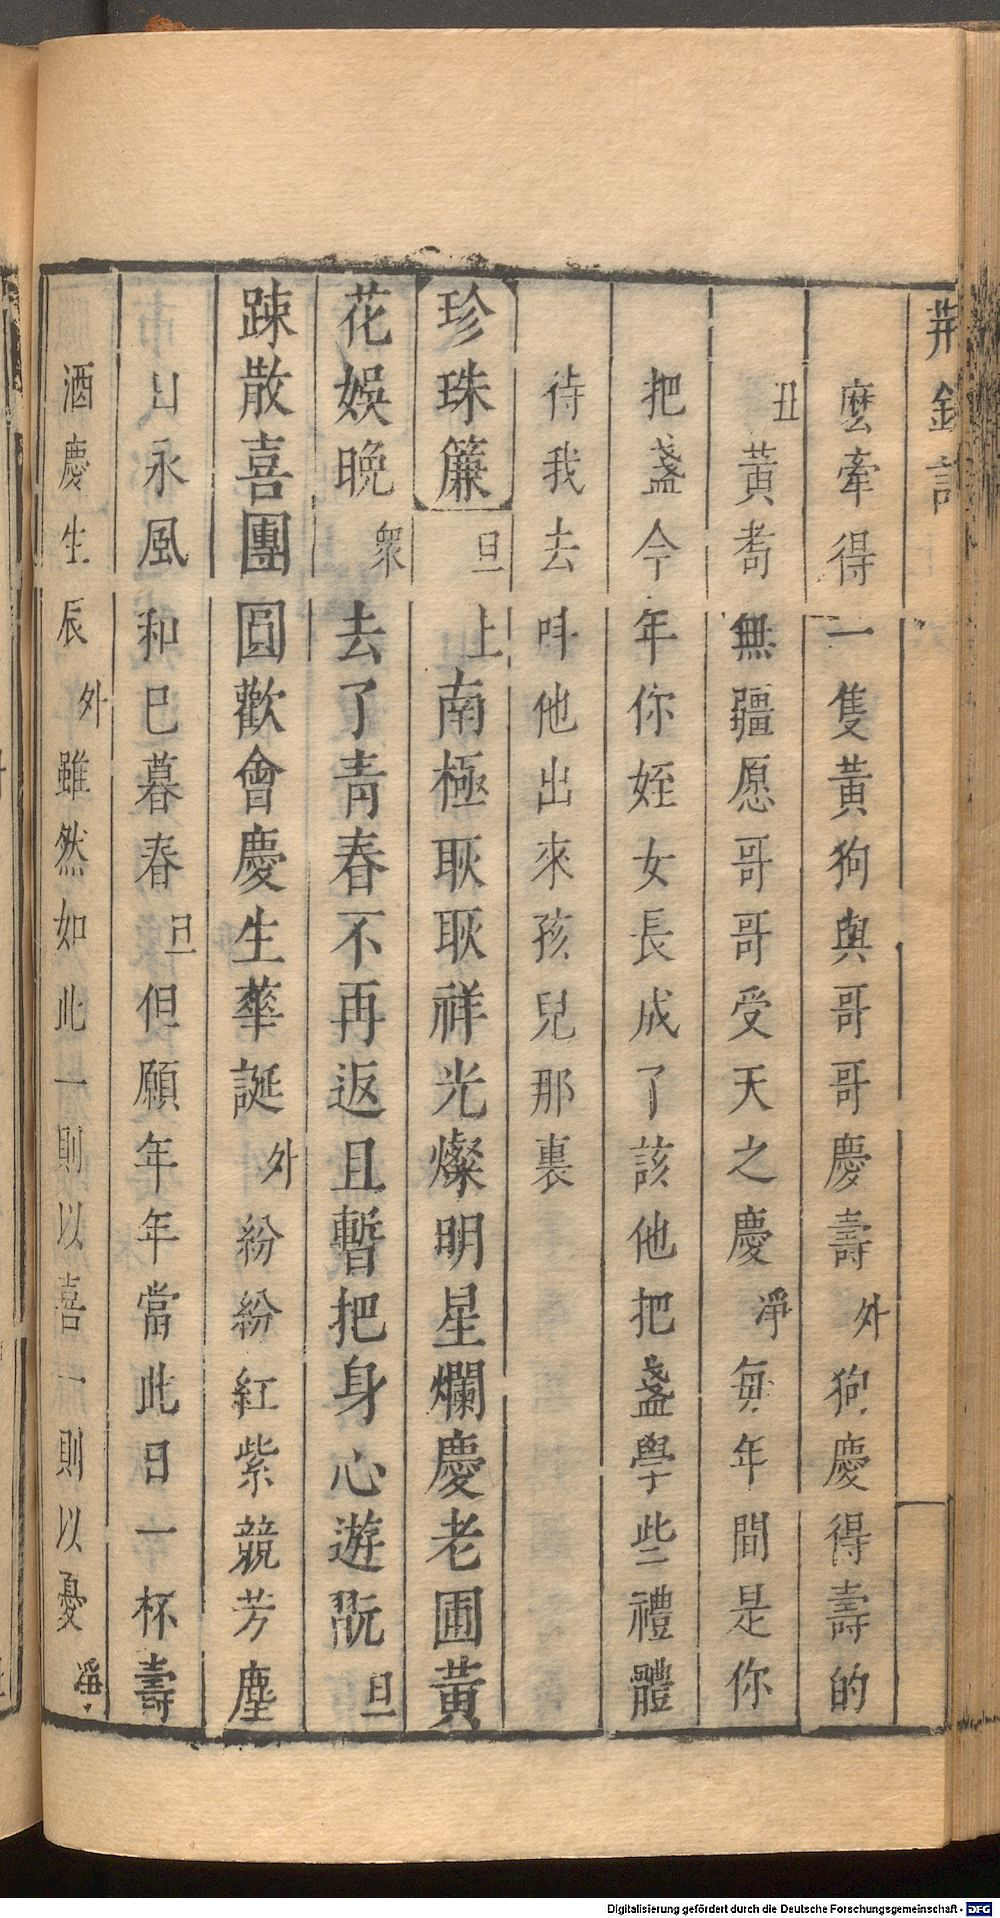 荆釵記
麽牽得一隻黃狗與哥哥慶壽外狗慶得壽的
丑黃耉無疆愿哥哥受天之慶凈每年間是你
把盞今年你姪女長成了該他把盞學些禮體
待我去呌他出來孩兒那裏
珍珠簾旦上南極耿耿祥光燦明星爛慶老圃黃
花娛晚衆去了青春不再返且暫把身心遊翫旦
踈散喜團圓歡會慶生華誕外紛紛紅紫競芳塵
日永風和巳暮春旦但願年年當此日一杯壽
酒慶生辰外雖然如此一則以喜一則以憂凈
Digitalisierung gefördert durch die Deutsche Forschungsgemeinschaft - DFG